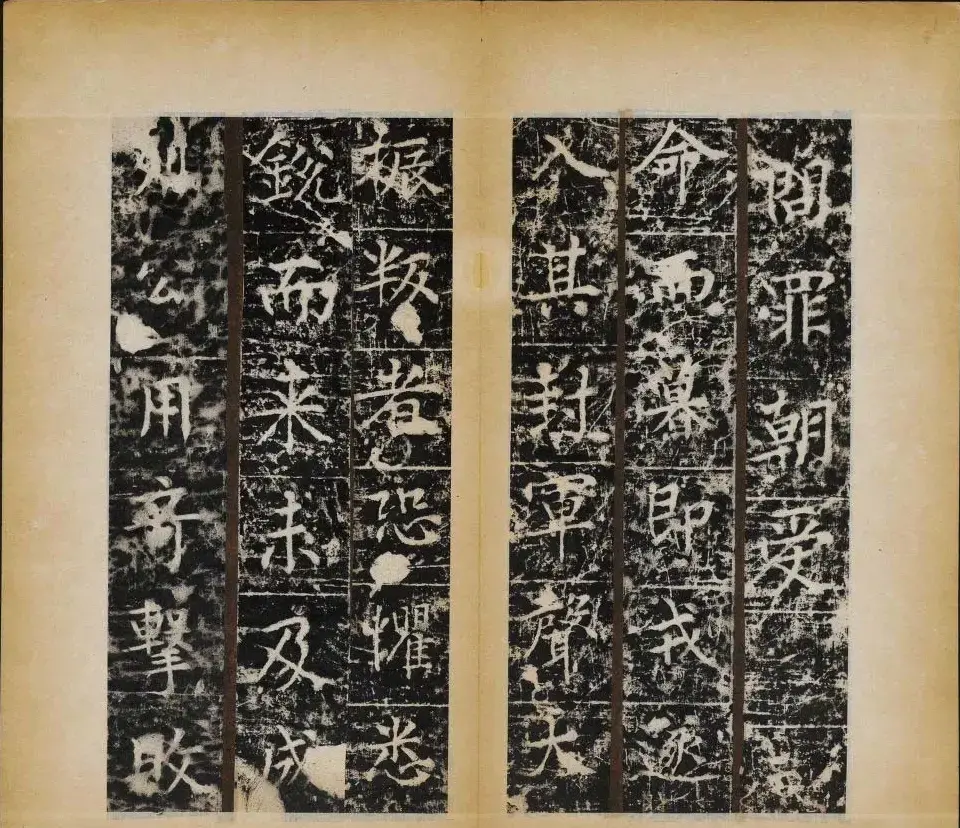 問罪朝受
命而暮即戎遂
入其封軍聲大
振叛者恐懼悉
銳而來未及成
列公用奇擊敗